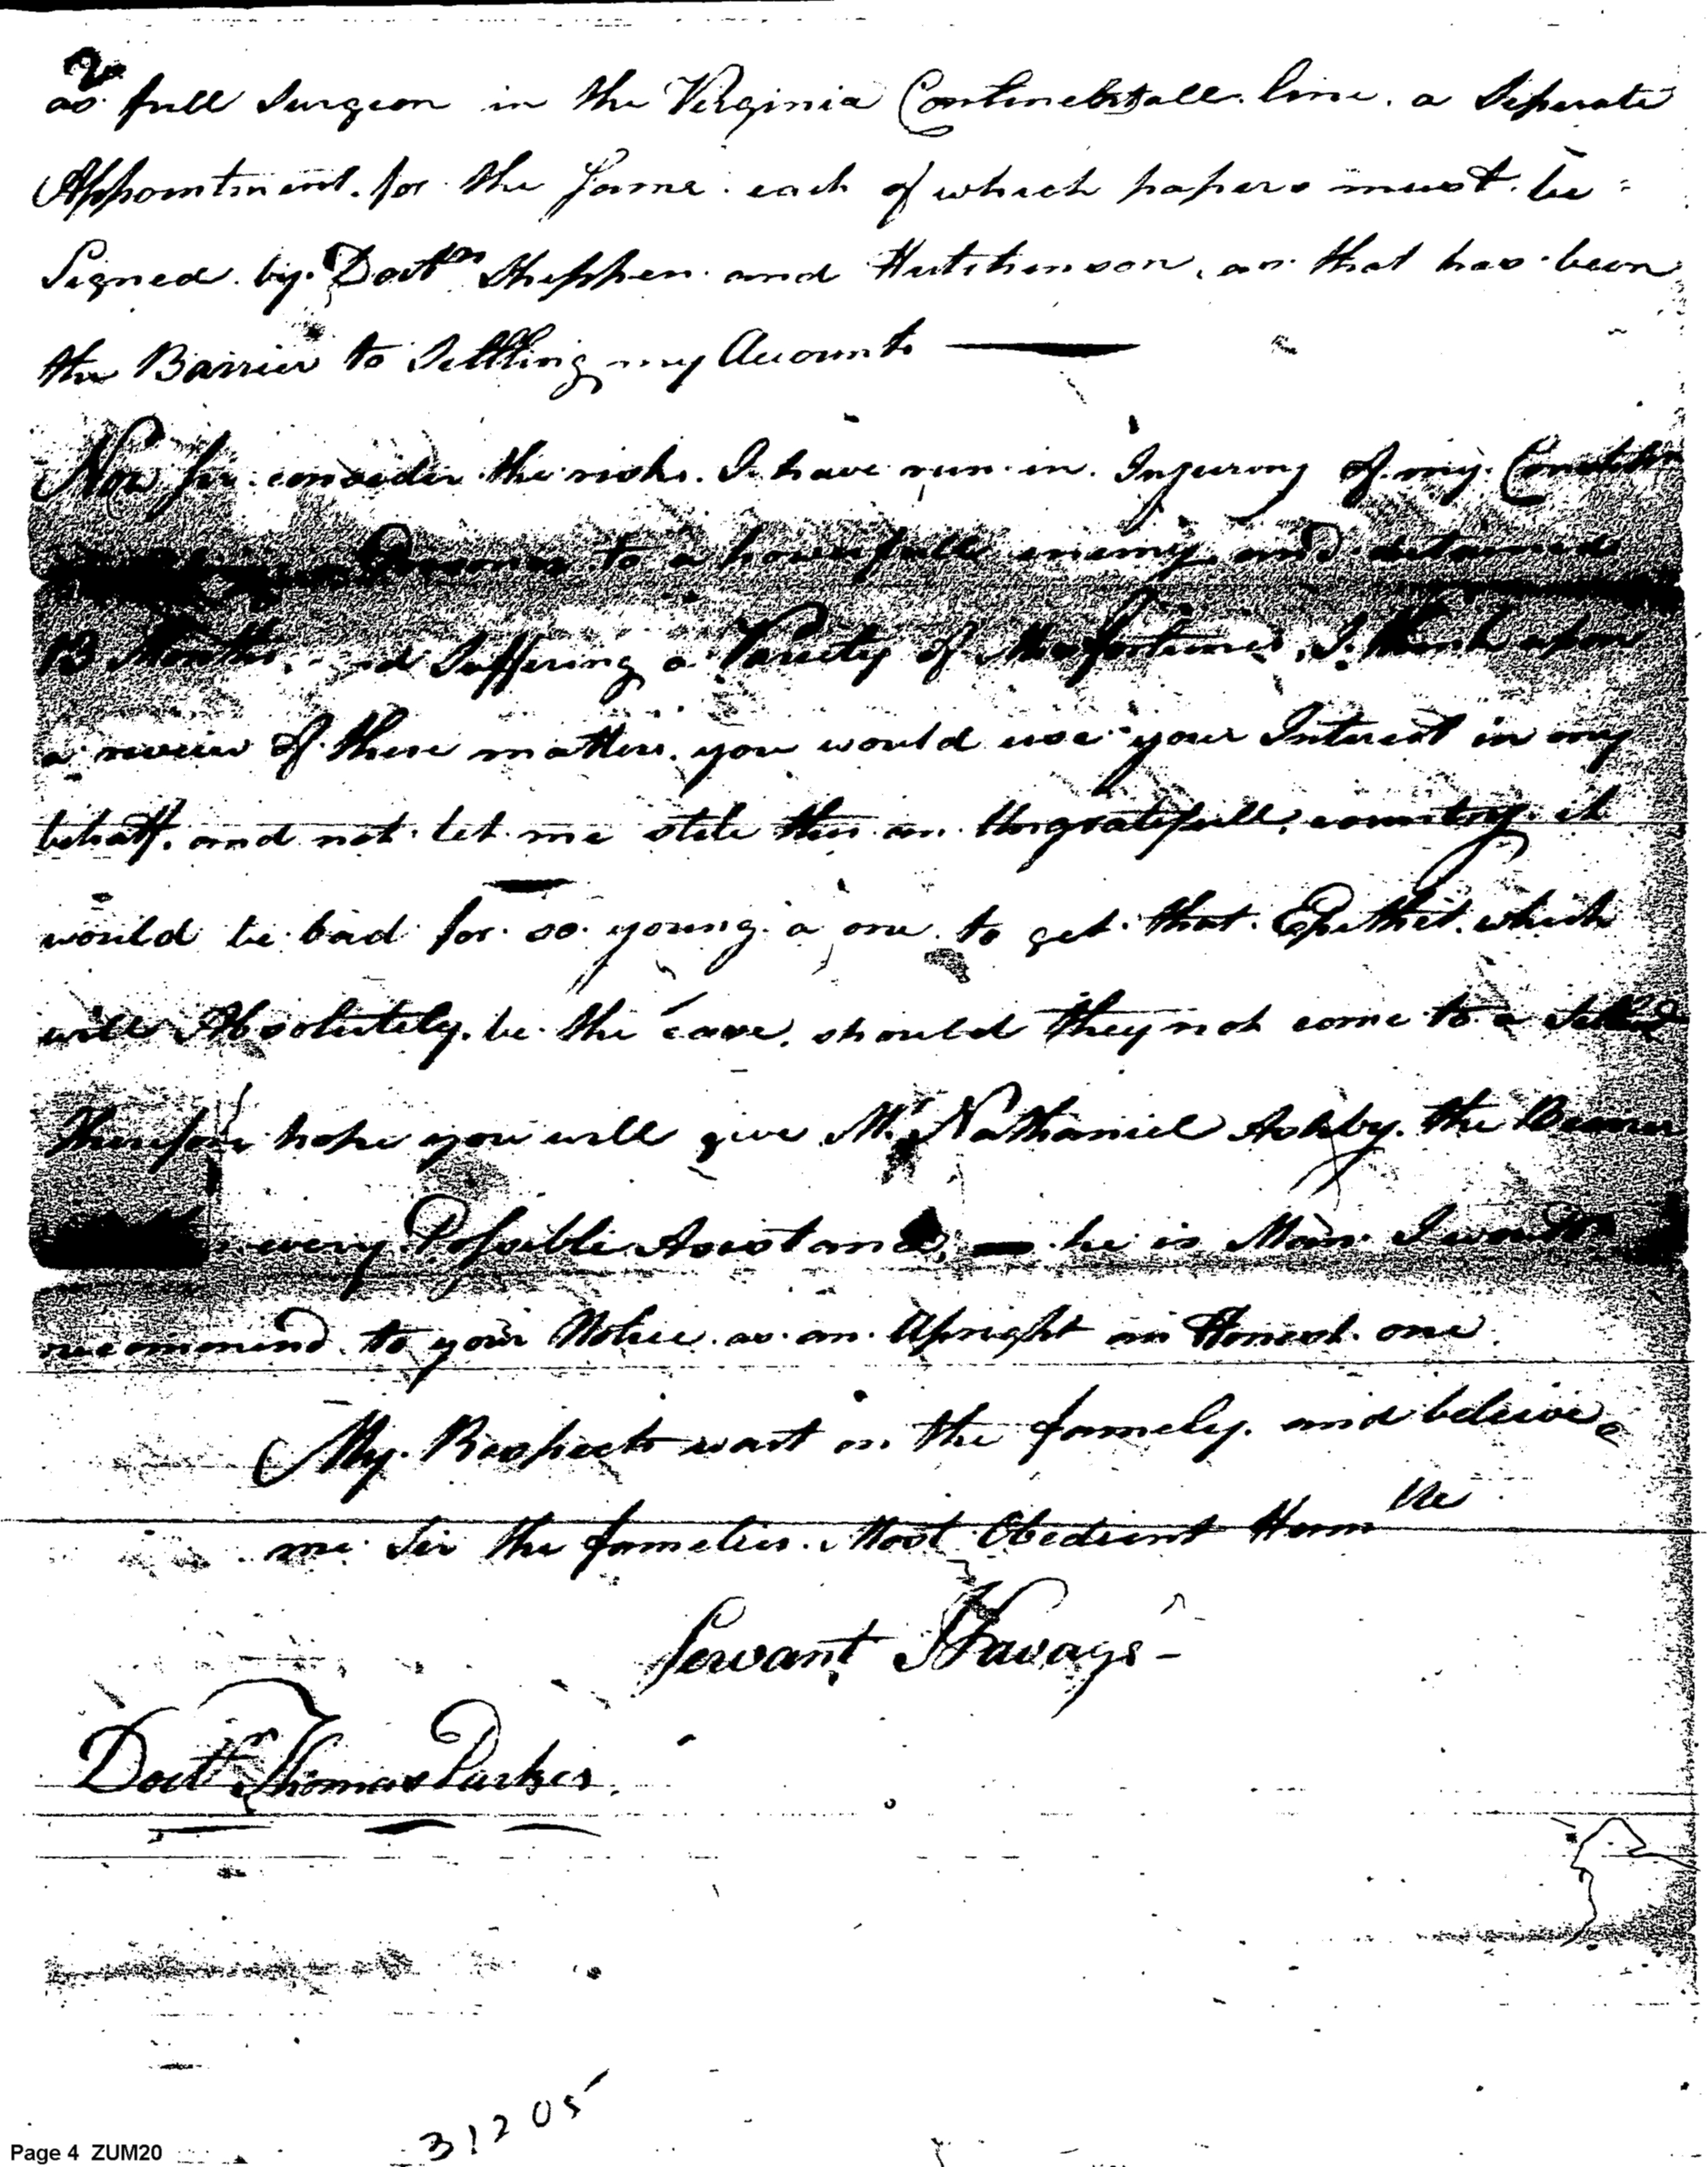 2
as full Surgeon in the Virginia Continentall line. a Seperate
Appointment. for the same. each of which papers must be
Signed by. Doctrs Shippen and Hutchinson, as that has been
the Barrier to Settling my Accounts
Now Sir consider the risks. I have run in. Injuring of my.
Prisoner to a powerfull enemy and detained
13 Months, and Suffering a Variety of Misfortunes, I think upon
a review of these matters. you would use your Interest in my
behalf. and not let me stile this an Ungratefull, country. it
would be bad for so young a one to get that Epithet. which
will Absolutely. be the case. should they not come to a
Therefore hope you will give Mr Nathaniel Ashby. the Bearer
every Possible Assistance, he is Man I would
recommend to your Notice as an Upright an Honest one
My. Respects wait on the famely. and believe
me Sir the famelies. Most Obedient Humble
Servant J Savage
Doctr Thomas Parker.
31205
Page 4 ZUM20